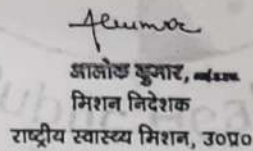 आलोक कुमार,
मिशन निदेशक
राष्ट्रीय स्वास्थ्य मिशन, उ०प्र०